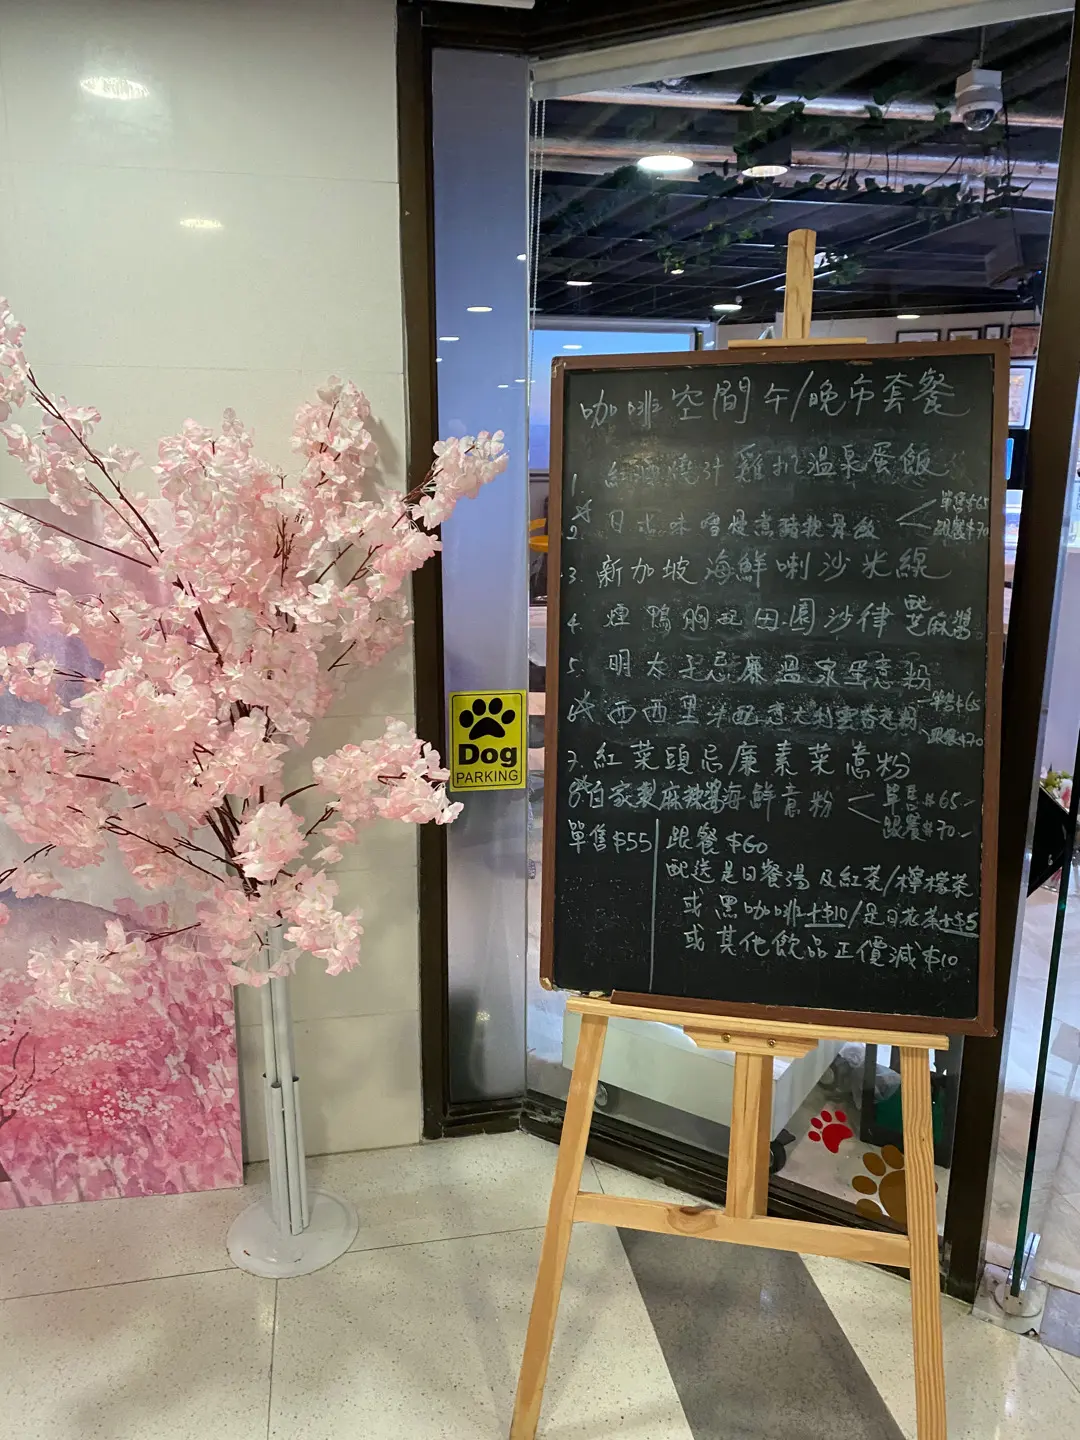 咖啡空間午/晚市套餐
1. 紅酒燒汁雞扒溫泉蛋飯
2. 日式味噌慢煮豬軟骨飯 單售$65
跟餐$70
3. 新加坡海鮮喇沙米線
4. 煙鴨胸配田園沙律配芝麻醬
5. 明太子忌廉溫泉蛋意粉
6. 西西里 配意大利雲吞意粉 單售$65
跟餐$70
7. 紅菜頭忌廉素菜意粉
8. 自家製麻辣醬海鮮意粉 單售$65-
跟餐$70-
單售$55 跟餐$60
配送是日餐湯及紅茶/檸檬茶
或黑咖啡+$10/是日花茶+$5
或其他飲品正價減$10
Dog
PARKING